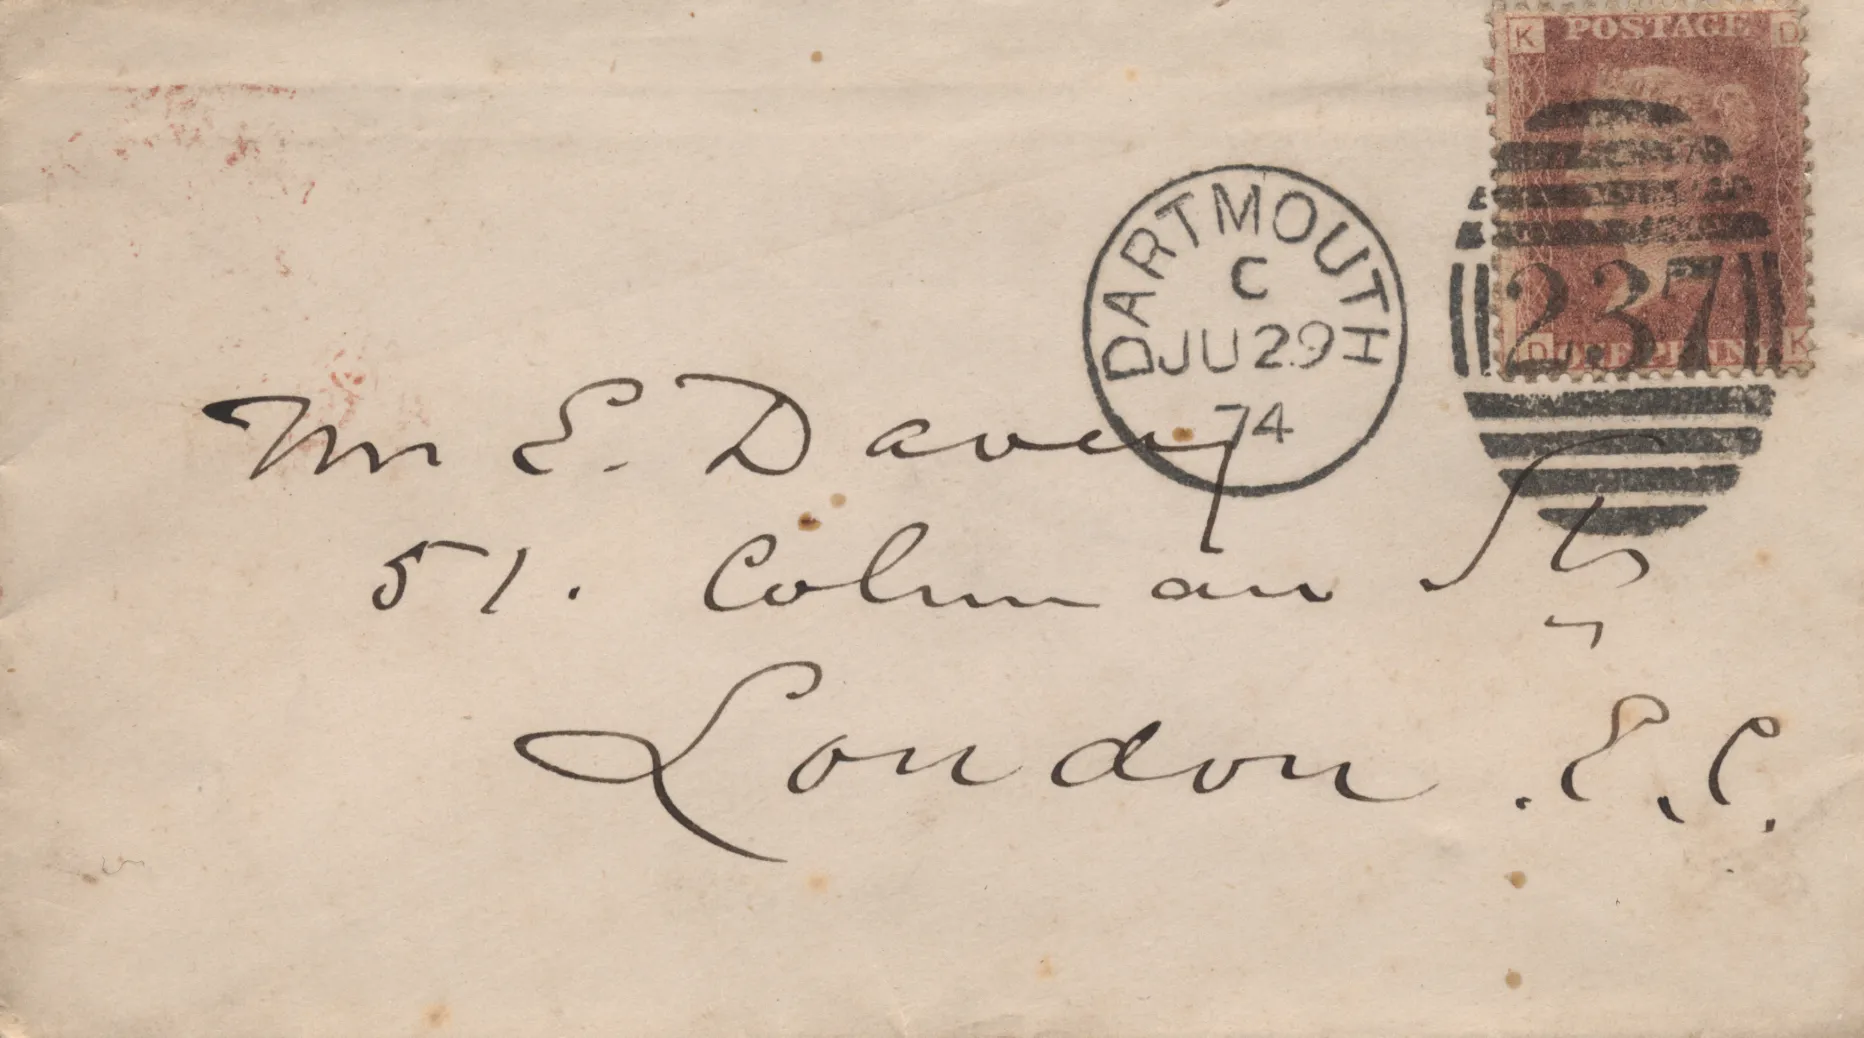 K POSTAGE D
DARTMOUTH
C
JU 29
74
237
D ONE PENNY K
Mr E. Davey
51. Colman St,
London. E. C.